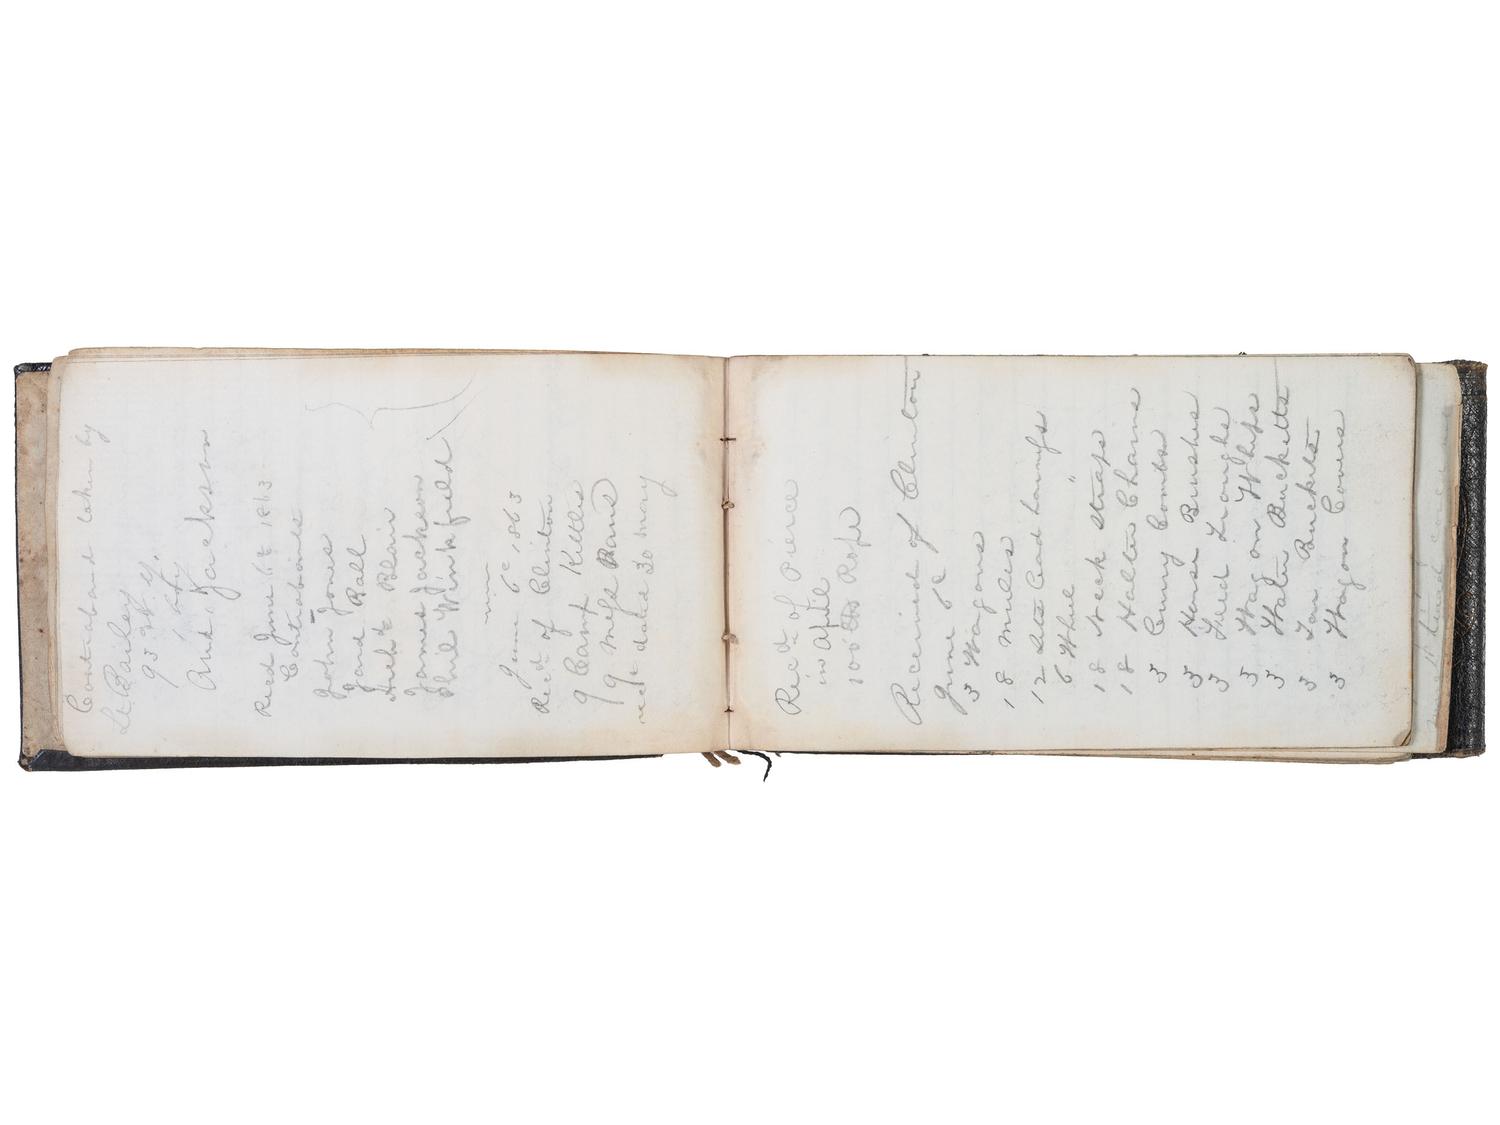 Contraband taken by
Lt. Bailey
95 N.Y.
And. Jackson
Recd June 6th 1863
Contrabands
John Jones
Jard Ball
Arch'd Blair
James Jackson
Phil Winkfield
June 6th 1863
Rec'd of Clinton
9 Camp Kittles
9 Mess Pans
rec't date 30 May
Rec'd of Pierce
in April
100 lbs Rope
Received of Clinton
June 6th
3 Wagons
18 Mules
12 Sets Lead harnefs
6 Wheel "
18 Neck Straps
18 Halter Chains
3 Curry Combs
3 Horse Brushes
3 Feed Troughs
3 Wagon Whips
3 Water Bucketts
3 Tar Buckets
3 Wagon Covers